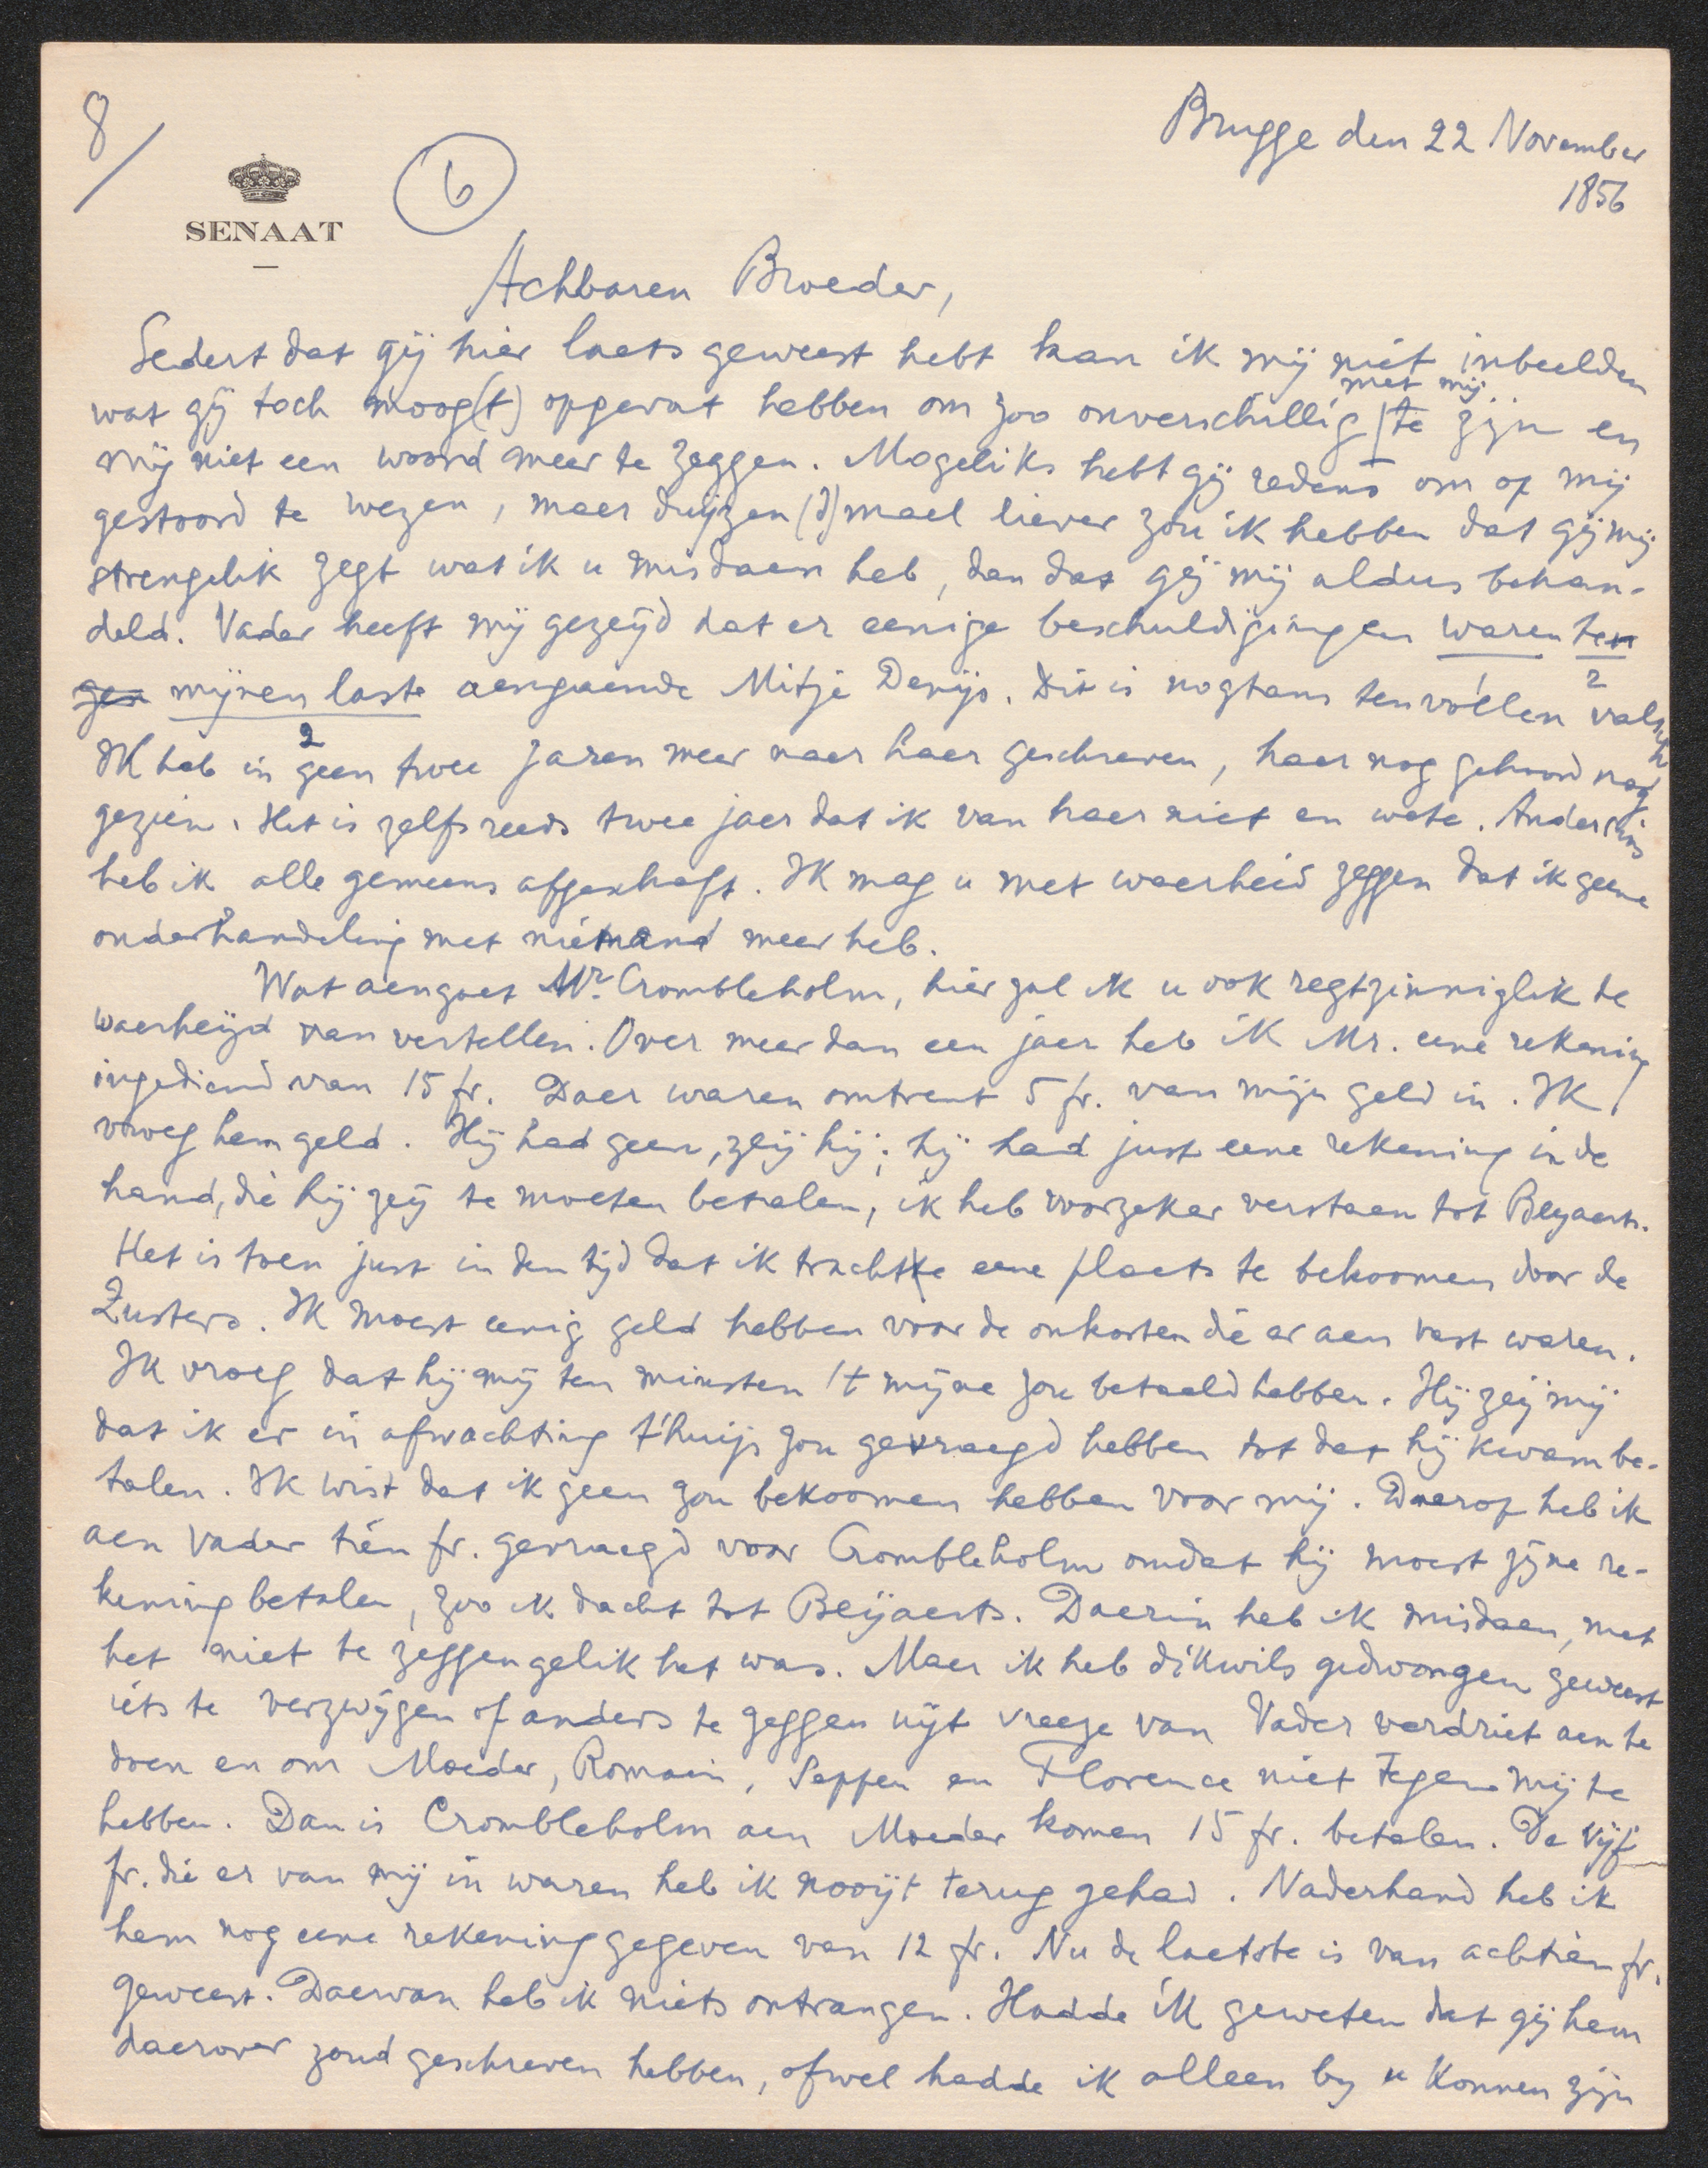 8/
SENAAT
6
Brugge den 22 November
1856
Achbaren Broeder,
Sedert dat gij hier laets geweest hebt kan ik mij niet inbeelden
met mij
wat gij toch moog(t) opgevat hebben om zoo onverschillig te zijn en
mij niet een woord meer te zeggen. Mogeliks hebt gij redens om op mij
gestoord te wezen, maer duijzen(d)mael liever zou ik hebben dat gij mij
strengelik zegt wat ik u misdaen heb, dan dat gij mij aldus behan-
deld. Vader heeft mij gezeijd dat er eenige beschuldigingen waren ten
gen mijnen laste aengaende Mitje Denijs. Dit is nogtans ten vollen valsch
2
2
Ik heb in geen twee jaren meer naer haer geschreven, haer nog gehoord nog
gezien. Het is zelfs reeds twee jaer dat ik van haer niet en wete. Andersins
heb ik alle gemeens afgeschaft. Ik mag u met waerheid zeggen dat ik geene
onderhandeling met niemand meer heb.
Wat aengaet Mr. Crombleholm, hier zal ik u ook regtzinniglik de
waerheijd van vertellen. Over meer dan een jaer heb ik Mr. eene rekening
ingediend van 15 fr. Daer waren omtrent 5 fr. van mijn geld in. Ik
vroeg hem geld. Hij had geen, zeij hij; hij had just eene rekening in de
hand, die hij zeij te moeten betalen, ik heb voorzeker verstaen tot Beyaerts.
Het is toen just in den tijd dat ik trachtte eene plaets te bekoomen door de
Zusters. Ik moest eenig geld hebben voor de onkosten die er aen vast waren.
Ik vroeg dat hij mij ten minsten 't mijne zou betaeld hebben. Hij zeij mij
dat ik er in afwachting t'huijs zou gevraegd hebben tot dat hij kwam be-
talen. Ik wist dat ik geen zou bekoomen hebben voor mij. Daerop heb ik
aen Vader tien fr. gevraegd voor Crombleholm omdat hij moest zijne re-
kening betalen, zoo ik dacht tot Beijaerts. Daerin heb ik misdaen, met
het niet te zeggen gelik het was. Maer ik heb dikwils gedwongen geweest
iets te verzwijgen of anders te zeggen uijt vreeze van Vader verdriet aen te
doen en om Moeder, Romain, Seppen en Florence niet tegen mij te
hebben. Dan is Crombleholm aen Moeder komen 15 fr. betalen. De vijf
fr. die er van mij in waren heb ik nooijt terug gehad. Naderhand heb ik
hem nog eene rekening gegeven van 12 fr. Nu de laetste is van achtien fr.
geweest. Daervan heb ik niets ontvangen. Hadde ik geweten dat gij hem
daerover zoud geschreven hebben, ofwel hadde ik alleen by u konnen zijn